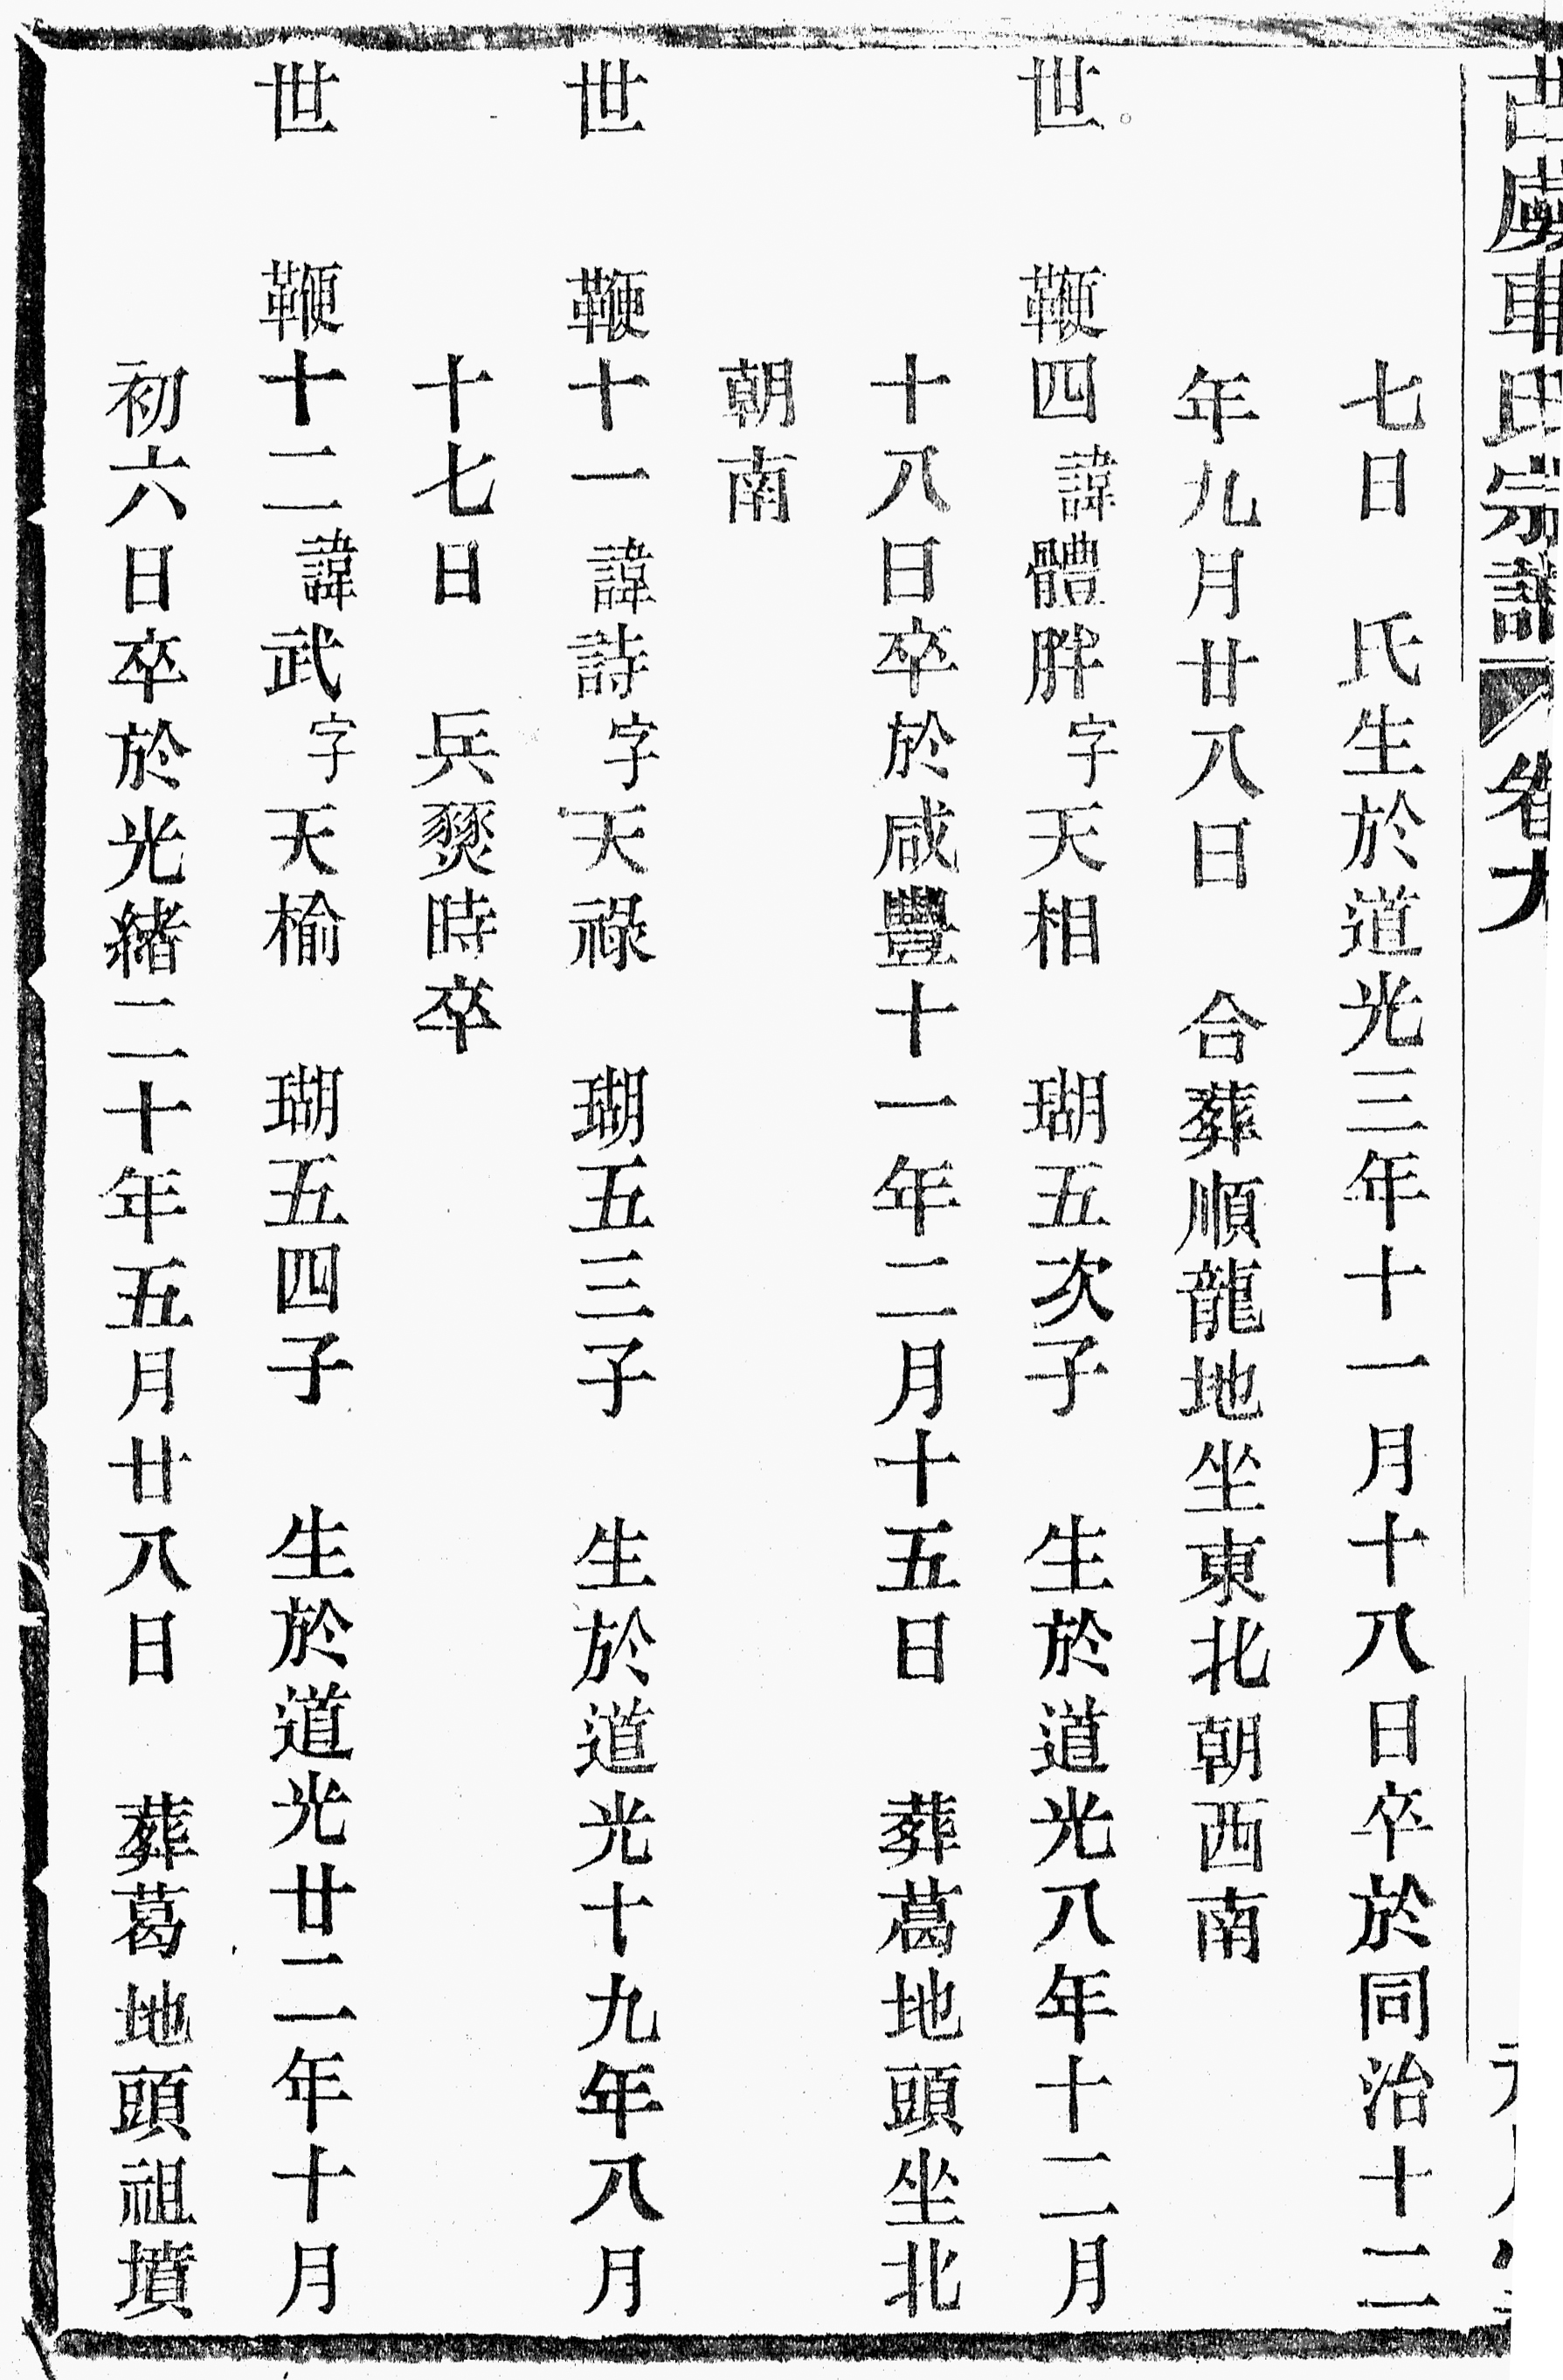 氏宗譜 卷九
七日 氏生於道光三年十一月十八日卒於同治十二
年九月廿八日 合葬順龍地坐東北朝西南
世 鞭四諱體胖字天相 瑚五次子 生於道光八年十二月
十八日卒於咸豐十一年二月十五日 葬葛地頭坐北
朝南
世 鞭十一諱詩字天祿 瑚五三子 生於道光十九年八月
十七日 兵燹時卒
世 鞭十二諱武字天榆 瑚五四子 生於道光廿二年十月
初六日卒於光緒二十年五月廿八日 葬葛地頭祖墳